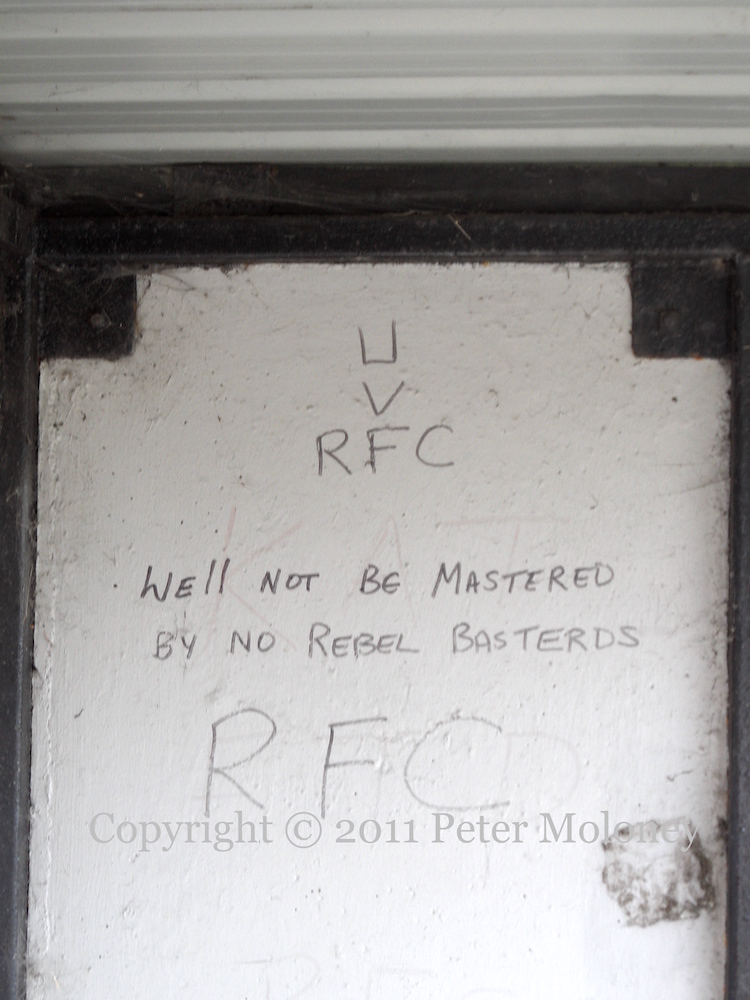 U
V
RFC
KAT
WEll NOT BE MASTERED
BY NO REBEL BASTERDS
RFC
Copyright © 2011 Peter Moloney
RFC